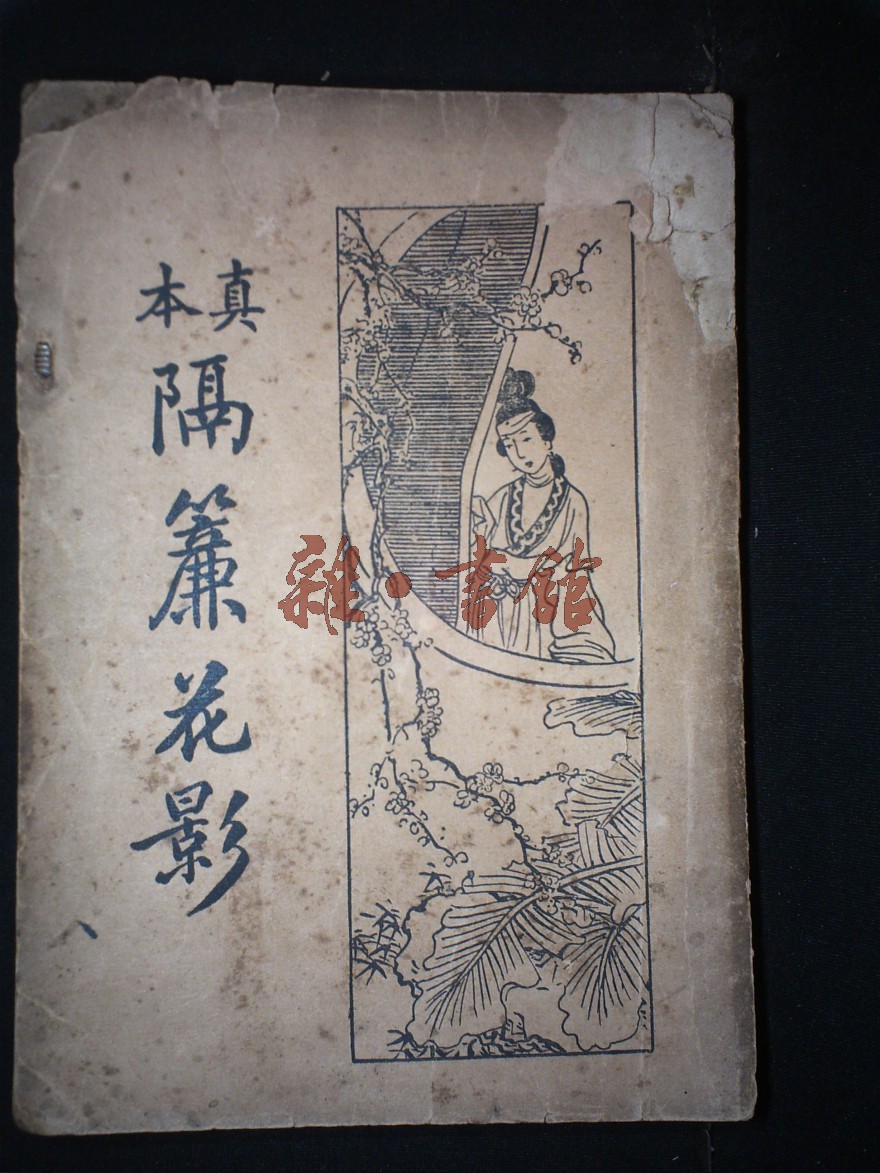 真本
隔簾花影
雜·書館